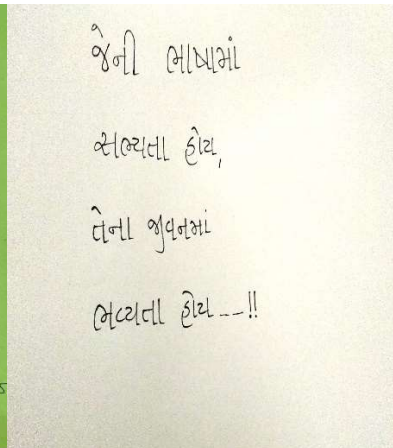 જેની ભાષામાં
સભ્યતા હોય,
તેના જીવનમાં
ભવ્યતા હોય__!!